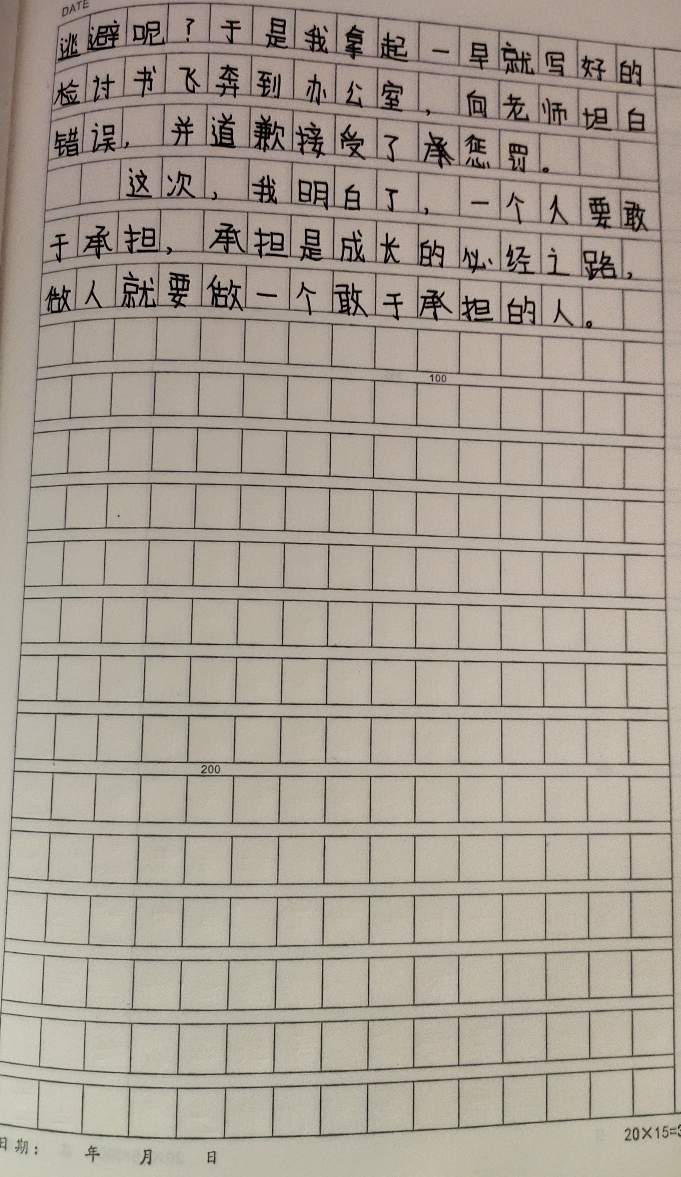 DATE
逃避呢？于是我拿起一早就写好的
检讨书飞奔到办公室，向老师坦白
错误，并道歉接受了承惩罚。
这次，我明白了，一个人要敢
于承担，承担是成长的必经之路，
做人就要做一个敢于承担的人。
100
200
日期： 年 月 日
20×15=3